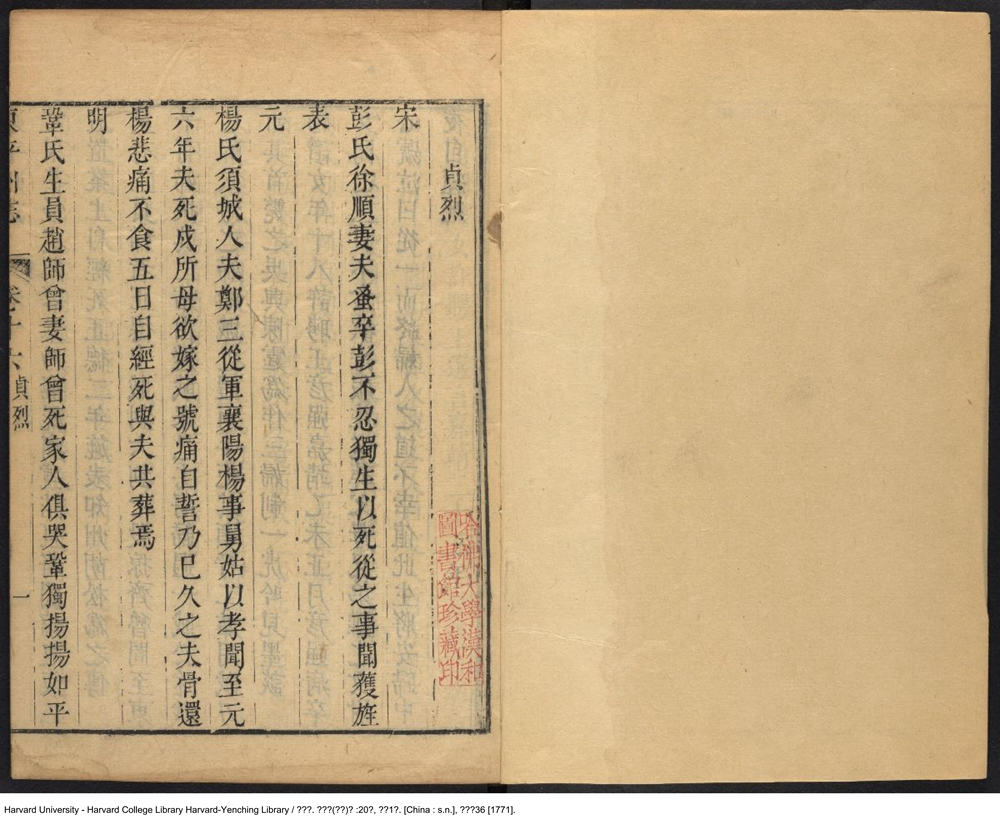 貞烈
宋
彭氏徐順妻夫蚤卒彭不忍獨生以死從之事聞獲旌
表
元
楊氏須城人夫鄭三從軍襄陽楊事舅姑以孝聞至元
六年夫死戍所母欲嫁之號痛自誓乃已久之夫骨還
楊悲痛不食五日自經死與夫共葬焉
明
鞏氏生員趙師曾妻師曾死家人俱哭鞏獨揚揚如平
東平州志 卷十六 貞烈 一
哈佛大學漢和
圖書館珍藏印
Harvard University - Harvard College Library Harvard-Yenching Library / ???. ???(??)? :20?, ??1?. [China : s.n.], ???36 [1771].